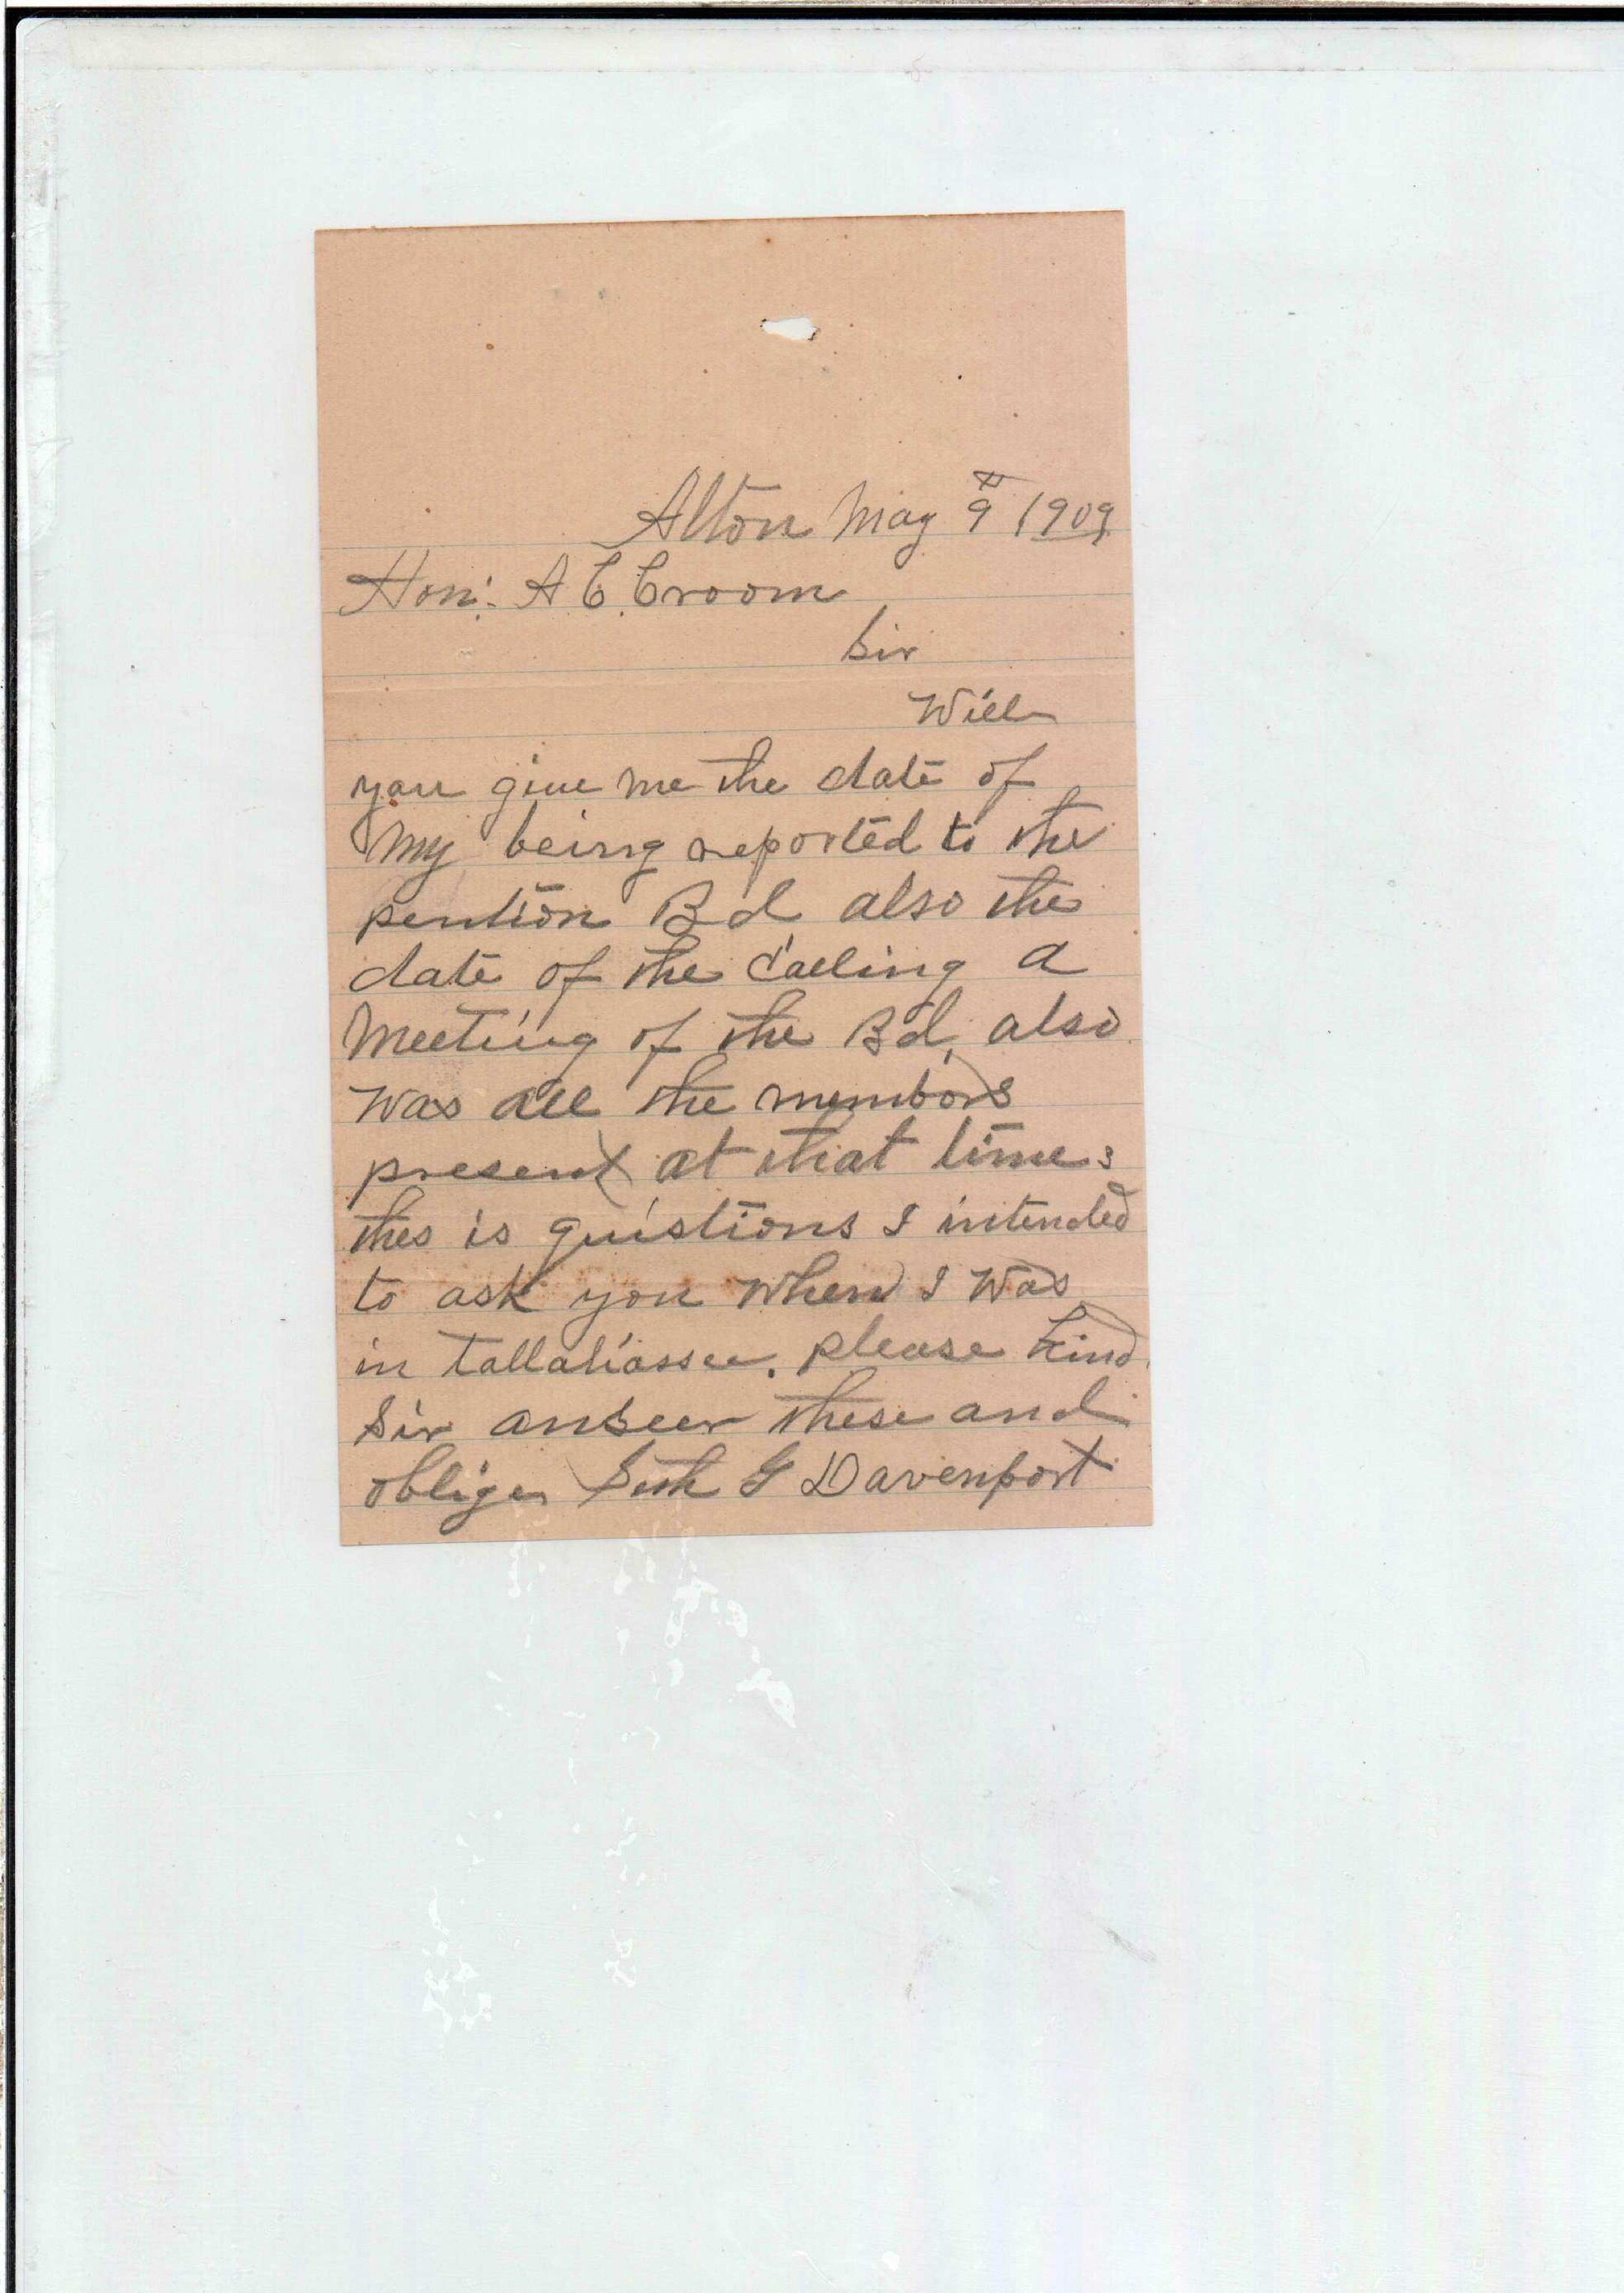 Alton May 9th 1909
Hon: A C Croom
Sir
Will
you give me the date of
My being reported to the
pention Bd also the
date of the Calling a
Meeting of the Bd, also
was all the members
present at that time;
thes is quistions I intended
to ask you when I was
in tallahassee. please kind
Sir anseer these and
oblige Seth G Davenport